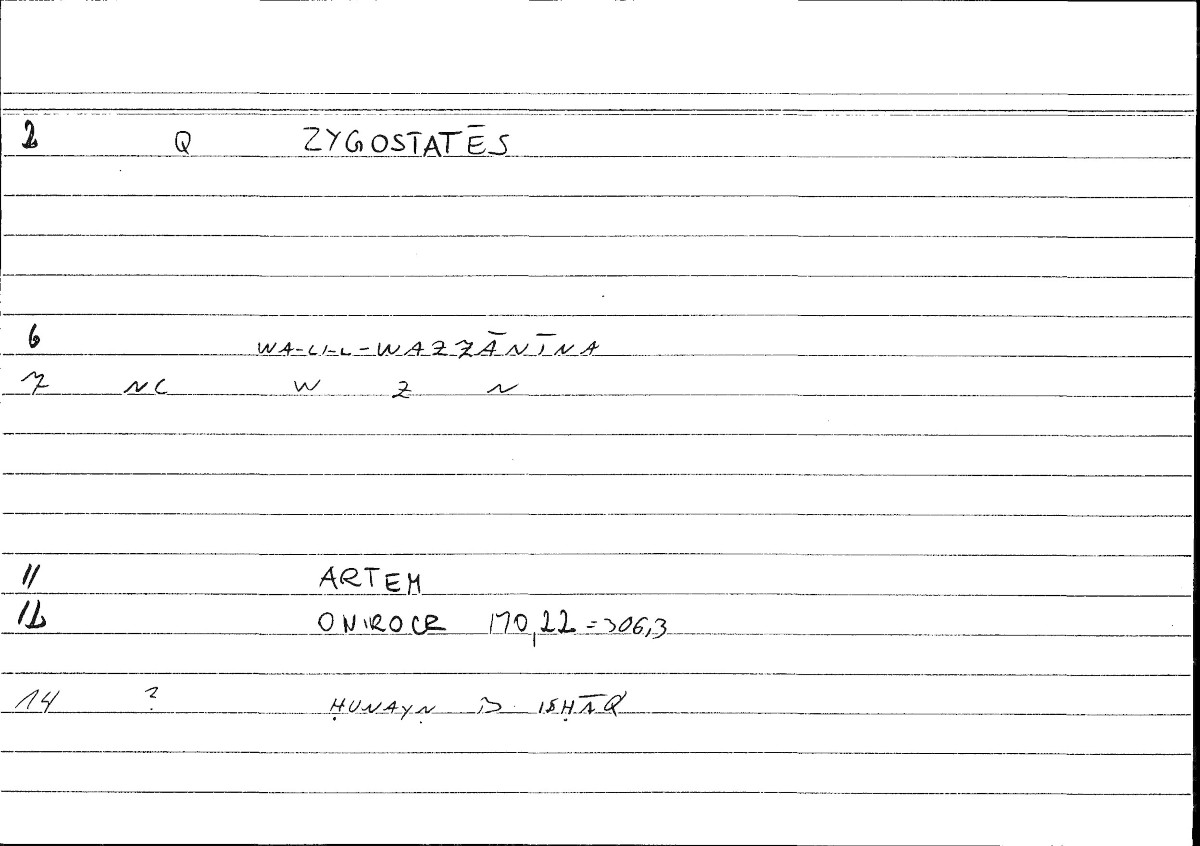 2 Q ZYGOSTATĒS
6 WA-LI-L-WAZZĀNĪNA
7 NC W Z N
11 ARTEM
12 ONIROCR 170,22=306,3
14 ? ḤUNAYṆ B ISḤĀQ